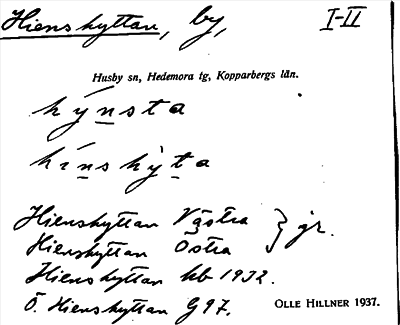 Hienshyttan, by, I-II
Husby sn, Hedemora tg, Kopparbergs län.
hýnsta
hínshỳta
Hienshyttan Västra } gr.
Hienshyttan Östra
Hienshyttan kb 1932.
Ö. Hienshyttan G97.
OLLE HILLNER 1937.